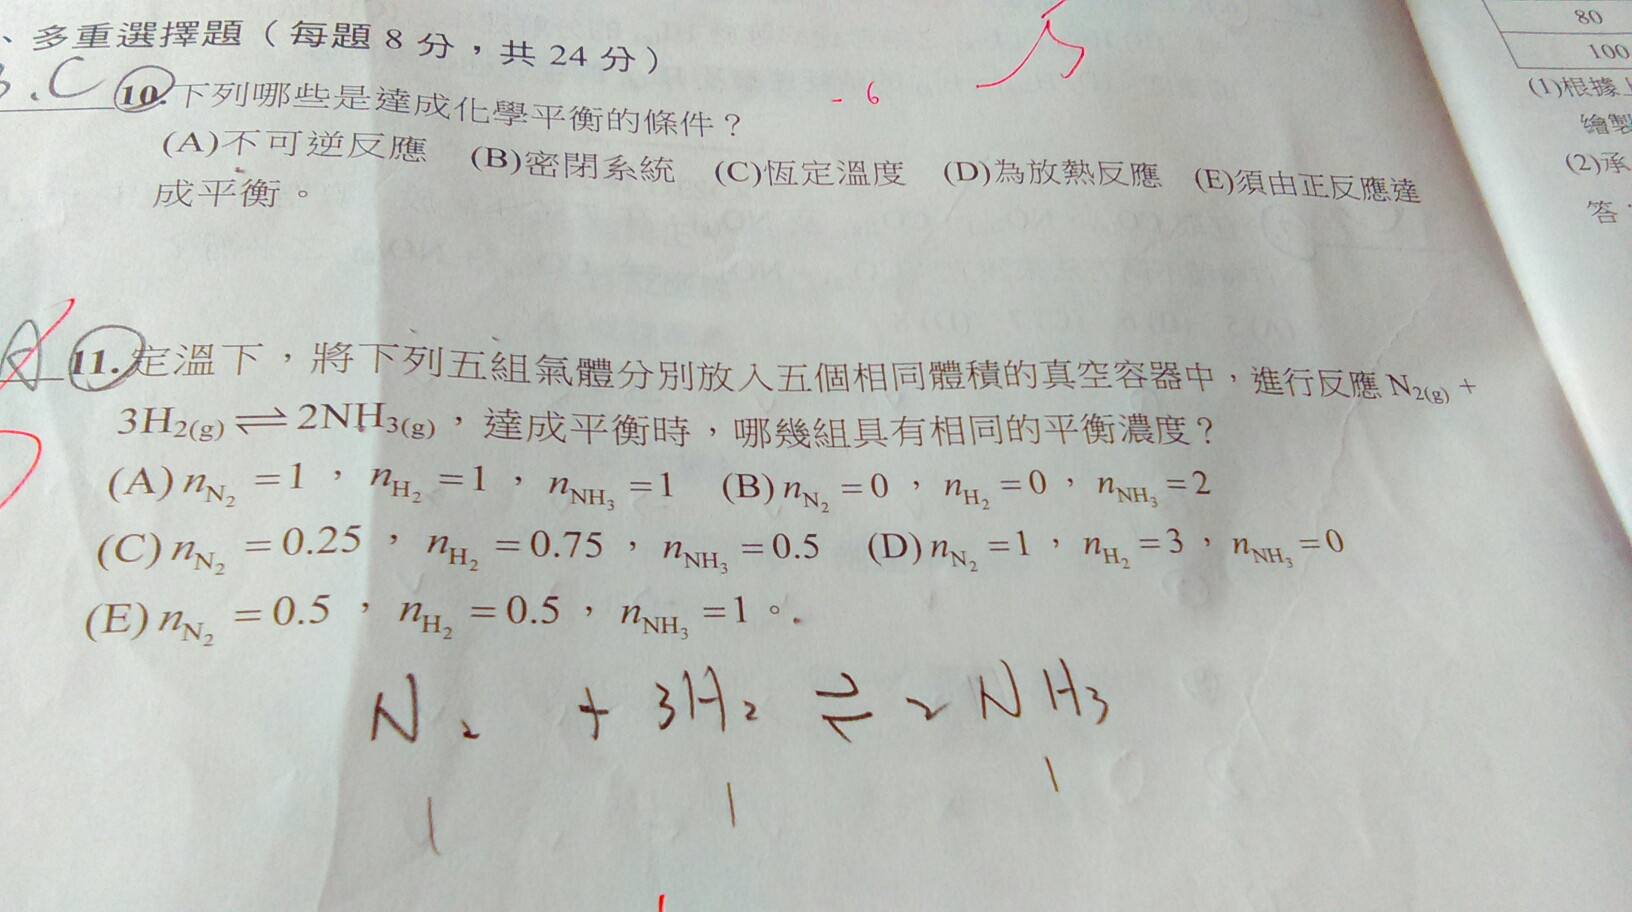 、多重選擇題（每題 8 分，共 24 分）
- 6
B.C 10.下列哪些是達成化學平衡的條件？
(A)不可逆反應 (B)密閉系統 (C)恆定溫度 (D)為放熱反應 (E)須由正反應達
成平衡。
A 11.定溫下，將下列五組氣體分別放入五個相同體積的真空容器中，進行反應 N₂(g) +
3H₂(g) ⇌ 2NH₃(g)，達成平衡時，哪幾組具有相同的平衡濃度？
(A) n_N₂ = 1 ， n_H₂ = 1 ， n_NH₃ = 1 (B) n_N₂ = 0 ， n_H₂ = 0 ， n_NH₃ = 2
(C) n_N₂ = 0.25 ， n_H₂ = 0.75 ， n_NH₃ = 0.5 (D) n_N₂ = 1 ， n_H₂ = 3 ， n_NH₃ = 0
(E) n_N₂ = 0.5 ， n_H₂ = 0.5 ， n_NH₃ = 1 。
N₂ + 3H₂ ⇌ 2NH₃
1 1 1
80
100
(1)根據
繪製
(2)承
答